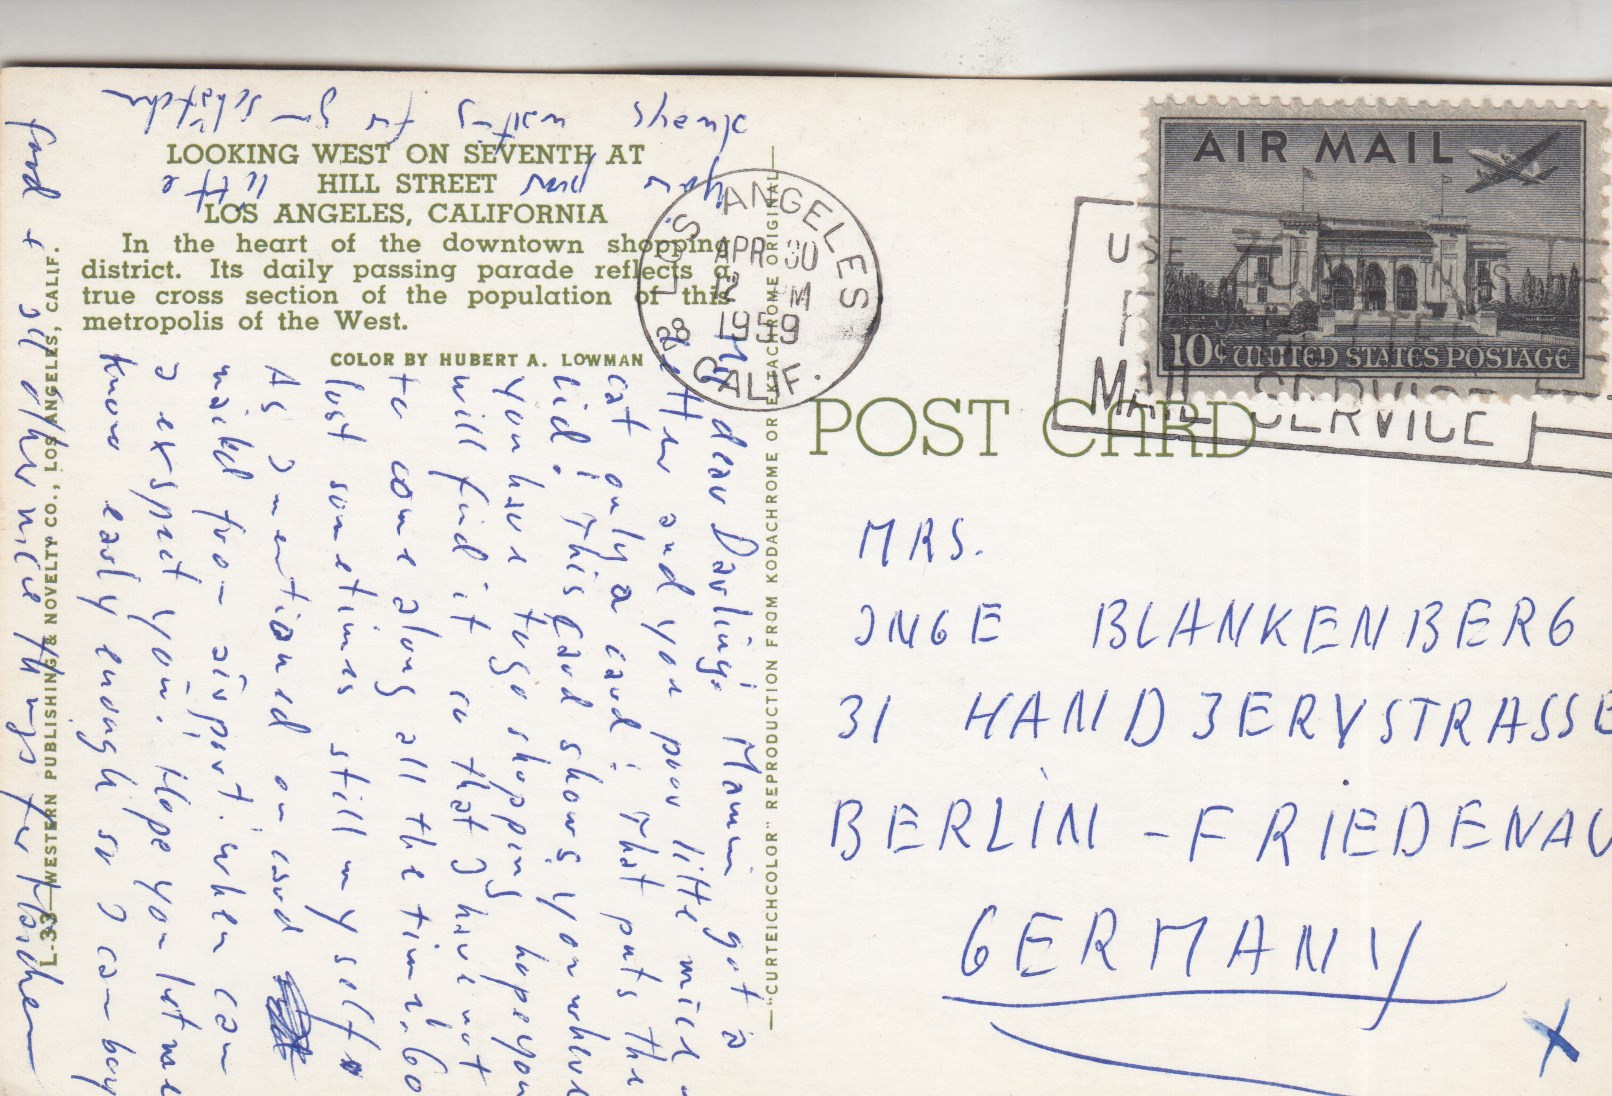 LOOKING WEST ON SEVENTH AT
HILL STREET
LOS ANGELES, CALIFORNIA
In the heart of the downtown shopping
district. Its daily passing parade reflects a
true cross section of the population of this
metropolis of the West.
COLOR BY HUBERT A. LOWMAN
L-33—WESTERN PUBLISHING & NOVELTY CO., LOS ANGELES, CALIF.
—"CURTEICHCOLOR" REPRODUCTION FROM KODACHROME OR EKTACHROME ORIGINAL—
POST CARD
LOS ANGELES
APR 30
12 M
1959
28
CALIF.
USE
MAIL SERVICE
AIR MAIL
10¢ UNITED STATES POSTAGE
MRS.
INGE BLANKENBERG
31 HANDJERYSTRASSE
BERLIN-FRIEDENAU
GERMANY
X
dear Darling, Mamin got a
and you poor little mice
cat only a card! That puts the
lid! This card shows you where
you have to go shopping hope you
will find it so that I have not
to come along all the time. Go
lost sometimes still myself
As I mentioned on card
mailed from airport: when can
I exspect you. Hope you let me
know early enough so I can buy
food + all other nice things for
your little
always waiting for you